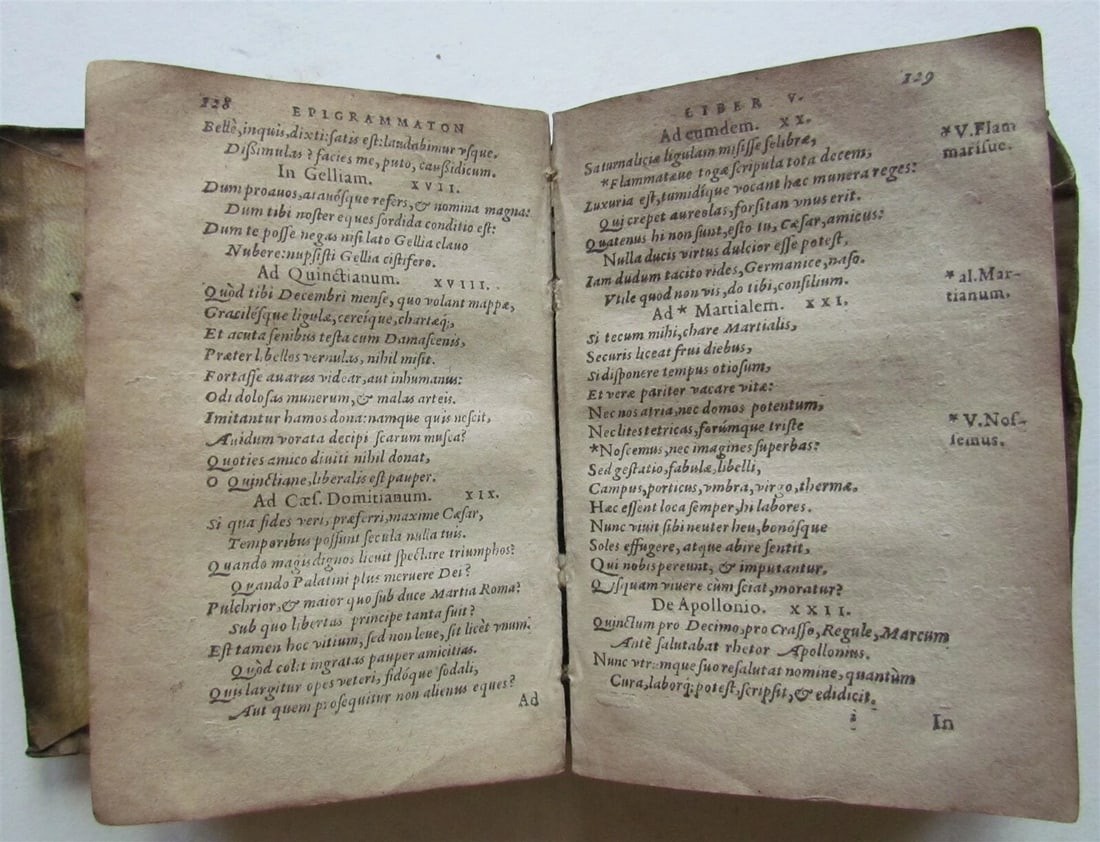 128
EPIGRAMMATON
Bellè, inquis, dixti: satis est: laudabimur vsque.
Dissimulas? facies me, puto, caussidicum.
In Gelliam. XVII.
Dum proauos, atauósque refers, & nomina magna:
Dum tibi noster eques sordida conditio est:
Dum te posse negas nisi lato Gellia clauo
Nubere: nupsisti Gellia cistifero.
Ad Quinctianum. XVIII.
Quòd tibi Decembri mense, quo volant mappæ,
Gracilésque ligulæ, cereíque, chartæq;,
Et acuta senibus testa cum Damascenis,
Præter libellos vernulas, nihil misit.
Fortasse auarus videar, aut inhumanus:
Odi dolosas munerum, & malas arteis.
Imitantur hamos dona: namque quis nescit,
Auidum vorata decipi scarum musca?
Quoties amico diuiti nihil donat,
O Quinctiane, liberalis est pauper.
Ad Cæs. Domitianum. XIX.
Si qua fides veris, præferri, maxime Cæsar,
Temporibus possunt secula nulla tuis.
Quando magis dignos licuit spectare triumphos?
Quando Palatini plus meruere Dei?
Pulchrior, & maior quo sub duce Martia Roma?
Sub quo libertas principe tanta fuit?
Est tamen hoc vitium, sed non leue, sit licèt vnum:
Quòd colit ingratas pauper amicitias.
Quis largitur opes veteri, fidóque sodali,
Aut quem prosequitur non alienus eques?
Ad
129
LIBER V.
Ad eumdem. XX.
Saturnaliciæ ligulam misisse selibræ,
*Flammatæue togæ scripula tota decem,
*V. Flam
marisue.
Luxuria est, tumidíque vocant hæc munera reges:
Qui crepet aureolas, forsitan vnus erit.
Quatenus hi non sunt, esto tu, Cæsar, amicus:
Nulla ducis virtus dulcior esse potest.
Iam dudum tacito rides, Germanice, naso.
Vtile quod non vis, do tibi, consilium.
Ad * Martialem. XXI.
* al. Mar-
tianum.
Si tecum mihi, chare Martialis,
Securis liceat frui diebus,
Si disponere tempus otiosum,
Et veræ pariter vacare vitæ:
Nec nos atria, nec domos potentum,
Nec lites tetricas, forúmque triste
*Noscemus, nec imagines superbas:
* V. Nos-
semus.
Sed gestatio, fabulæ, libelli,
Campus, porticus, vmbra, virgo, thermæ,
Hæc essent loca semper, hi labores.
Nunc viuit sibi neuter heu, bonósque
Soles effugere, atque abire sentit,
Qui nobis pereunt, & imputantur.
Quisquam viuere cùm sciat, moratur?
De Apollonio. XXII.
Quinctum pro Decimo, pro Crasso, Regule, Marcum
Antè salutabat rhetor Apollonius.
Nunc vtrumque suo resalutat nomine, quantùm
Cura, laborq; potest, scripsit, & edidicit.
i
In